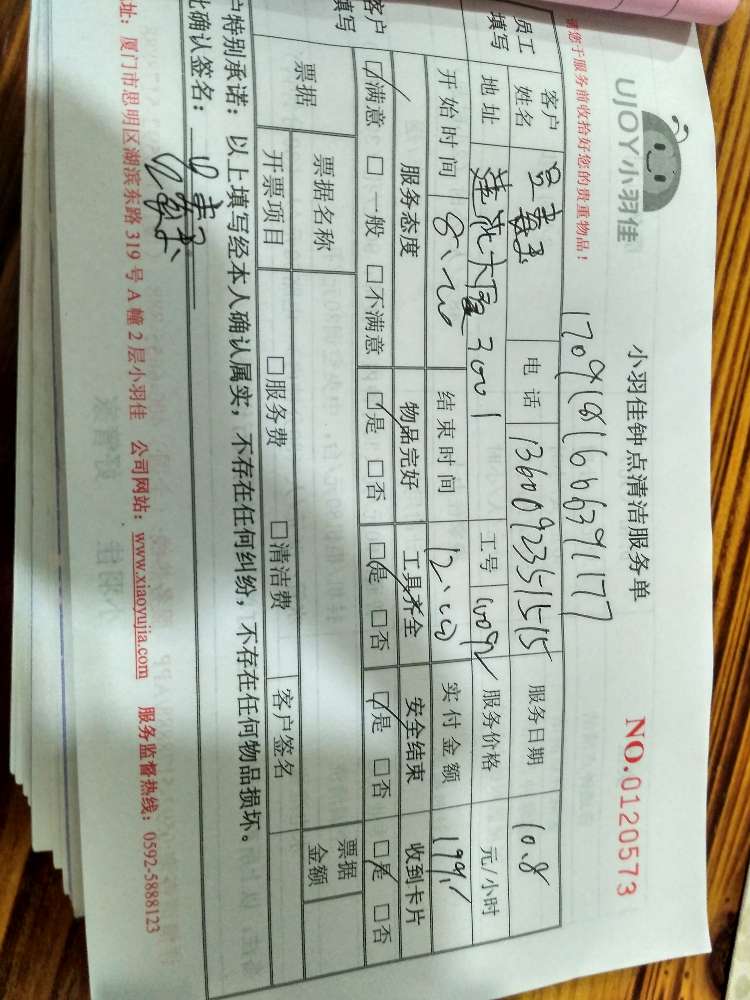 UJOY小羽佳
小羽佳钟点清洁服务单
NO.0120573
请您于服务前收拾好您的贵重物品！
员工填写
客户姓名
电话
服务日期 10.8
地址 莲花大厦3001
工号
服务价格 元/小时
开始时间 8:00
结束时间 12:00
实付金额
客户填写
服务态度 物品完好 工具齐全 安全结束 收到卡片
☑满意 □一般 □不满意 ☑是 □否 ☑是 □否 ☑是 □否 ☑是 □否
票据 票据名称 票据金额
开票项目 □服务费 □清洁费 客户签名
户特别承诺：以上填写经本人确认属实，不存在任何纠纷，不存在任何物品损坏。
此确认签名：
址：厦门市思明区湖滨东路 319 号 A 幢 2 层小羽佳 公司网站：www.xiaoyujia.com 服务监督热线：0592-5888123